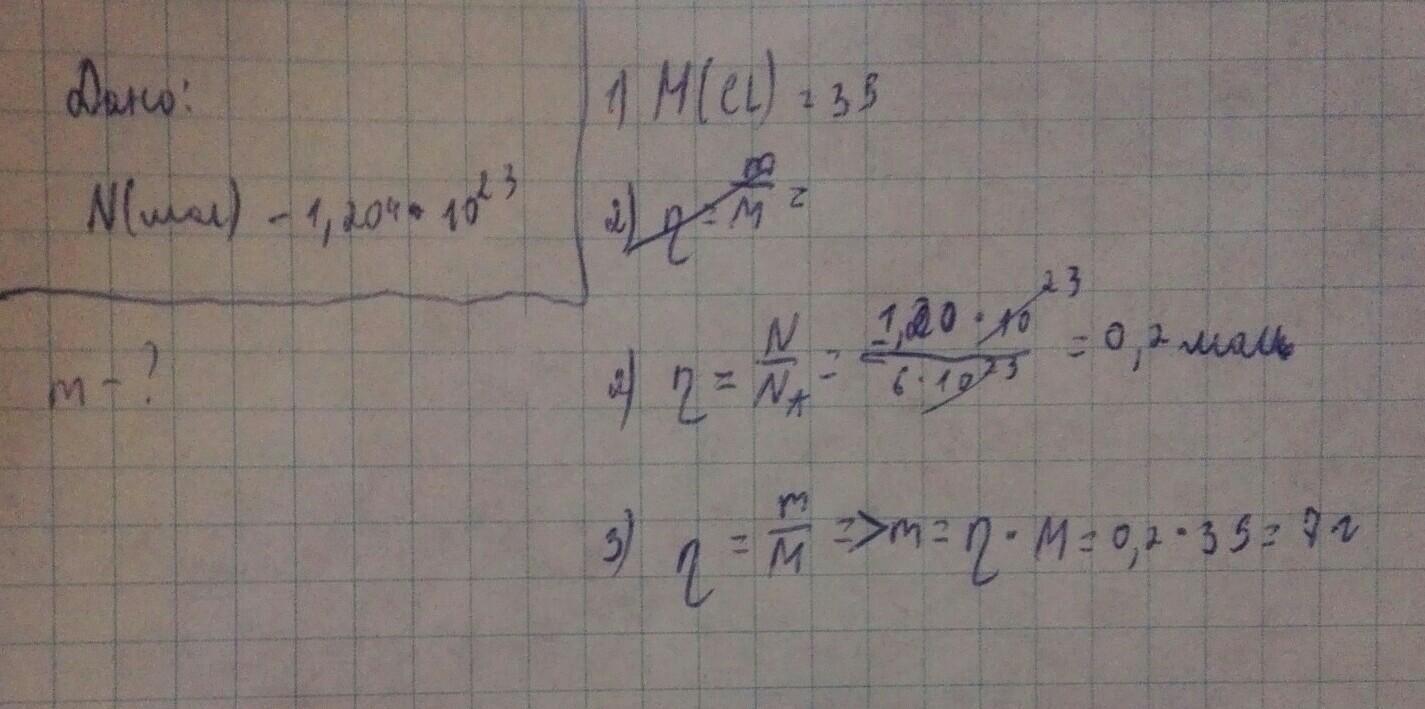 Дано:
N(мол) - 1,204 · 10²³
m - ?
1) M(Cl) = 35
2) η = m/M =
2) η = N/N_A = 1,20 · 10²³ / 6 · 10²³ = 0,2 моль
3) η = m/M => m = η · M = 0,2 · 35 = 7 г